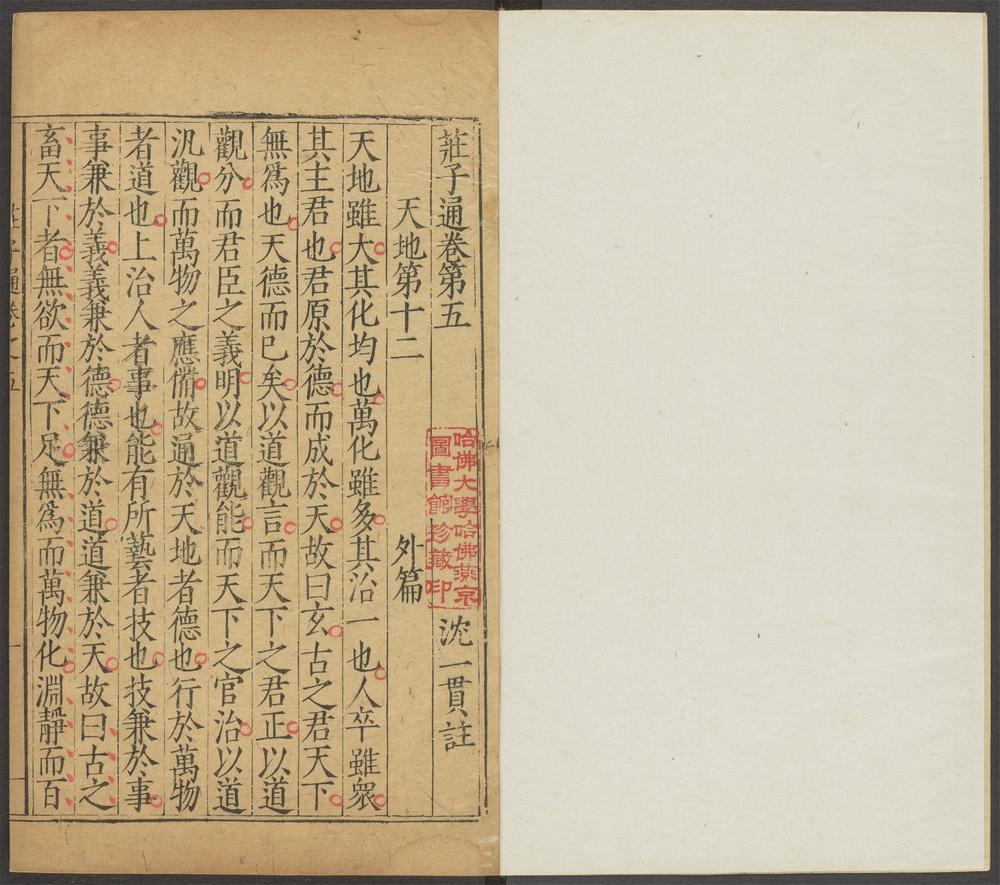 莊子通卷第五 沈一貫註
哈佛大學哈佛燕京
圖書館珍藏印
天地第十二 外篇
天地雖大其化均也萬化雖多其治一也人卒雖衆
其主君也君原於德而成於天故曰玄古之君天下
無爲也天德而已矣以道觀言而天下之君正以道
觀分而君臣之義明以道觀能而天下之官治以道
汎觀而萬物之應備故通於天地者德也行於萬物
者道也上治人者事也能有所藝者技也技兼於事
事兼於義義兼於德德兼於道道兼於天故曰古之
畜天下者無欲而天下足無爲而萬物化淵靜而百
莊子通卷之五 一